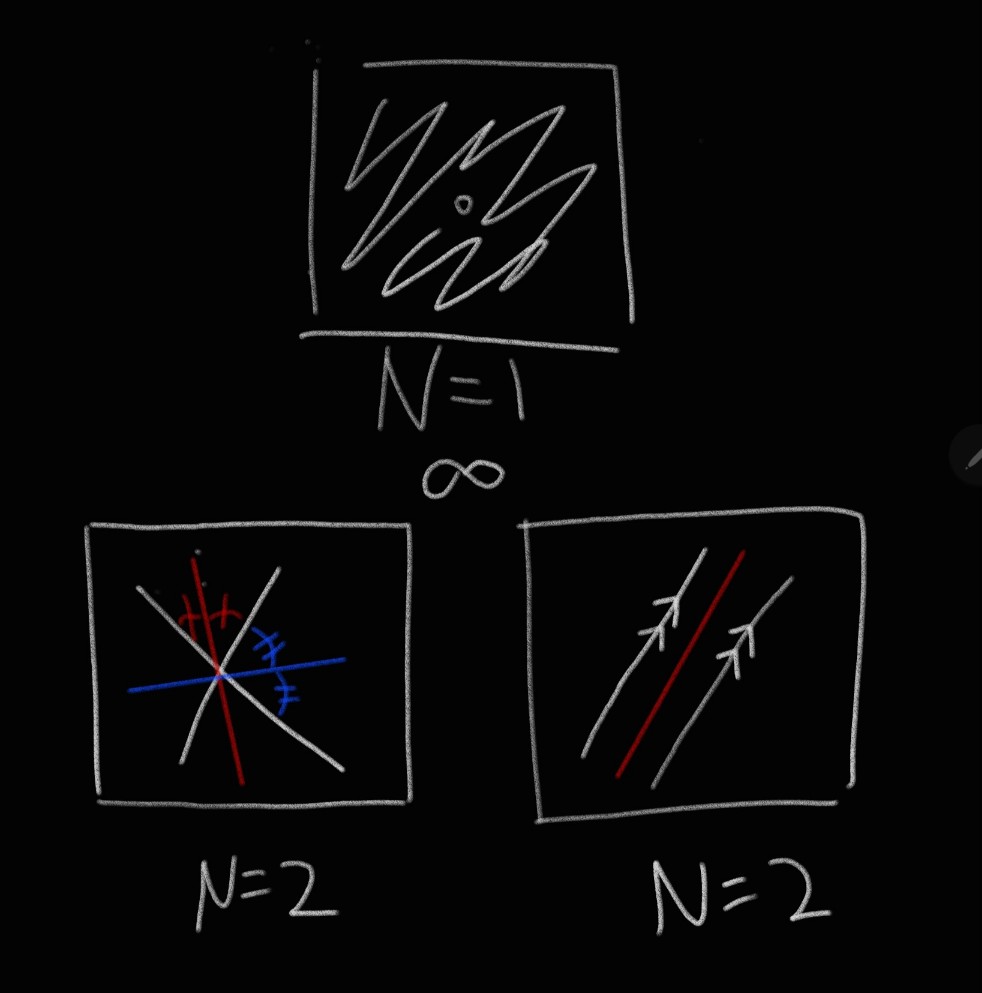 N=1
∞
N=2
N=2